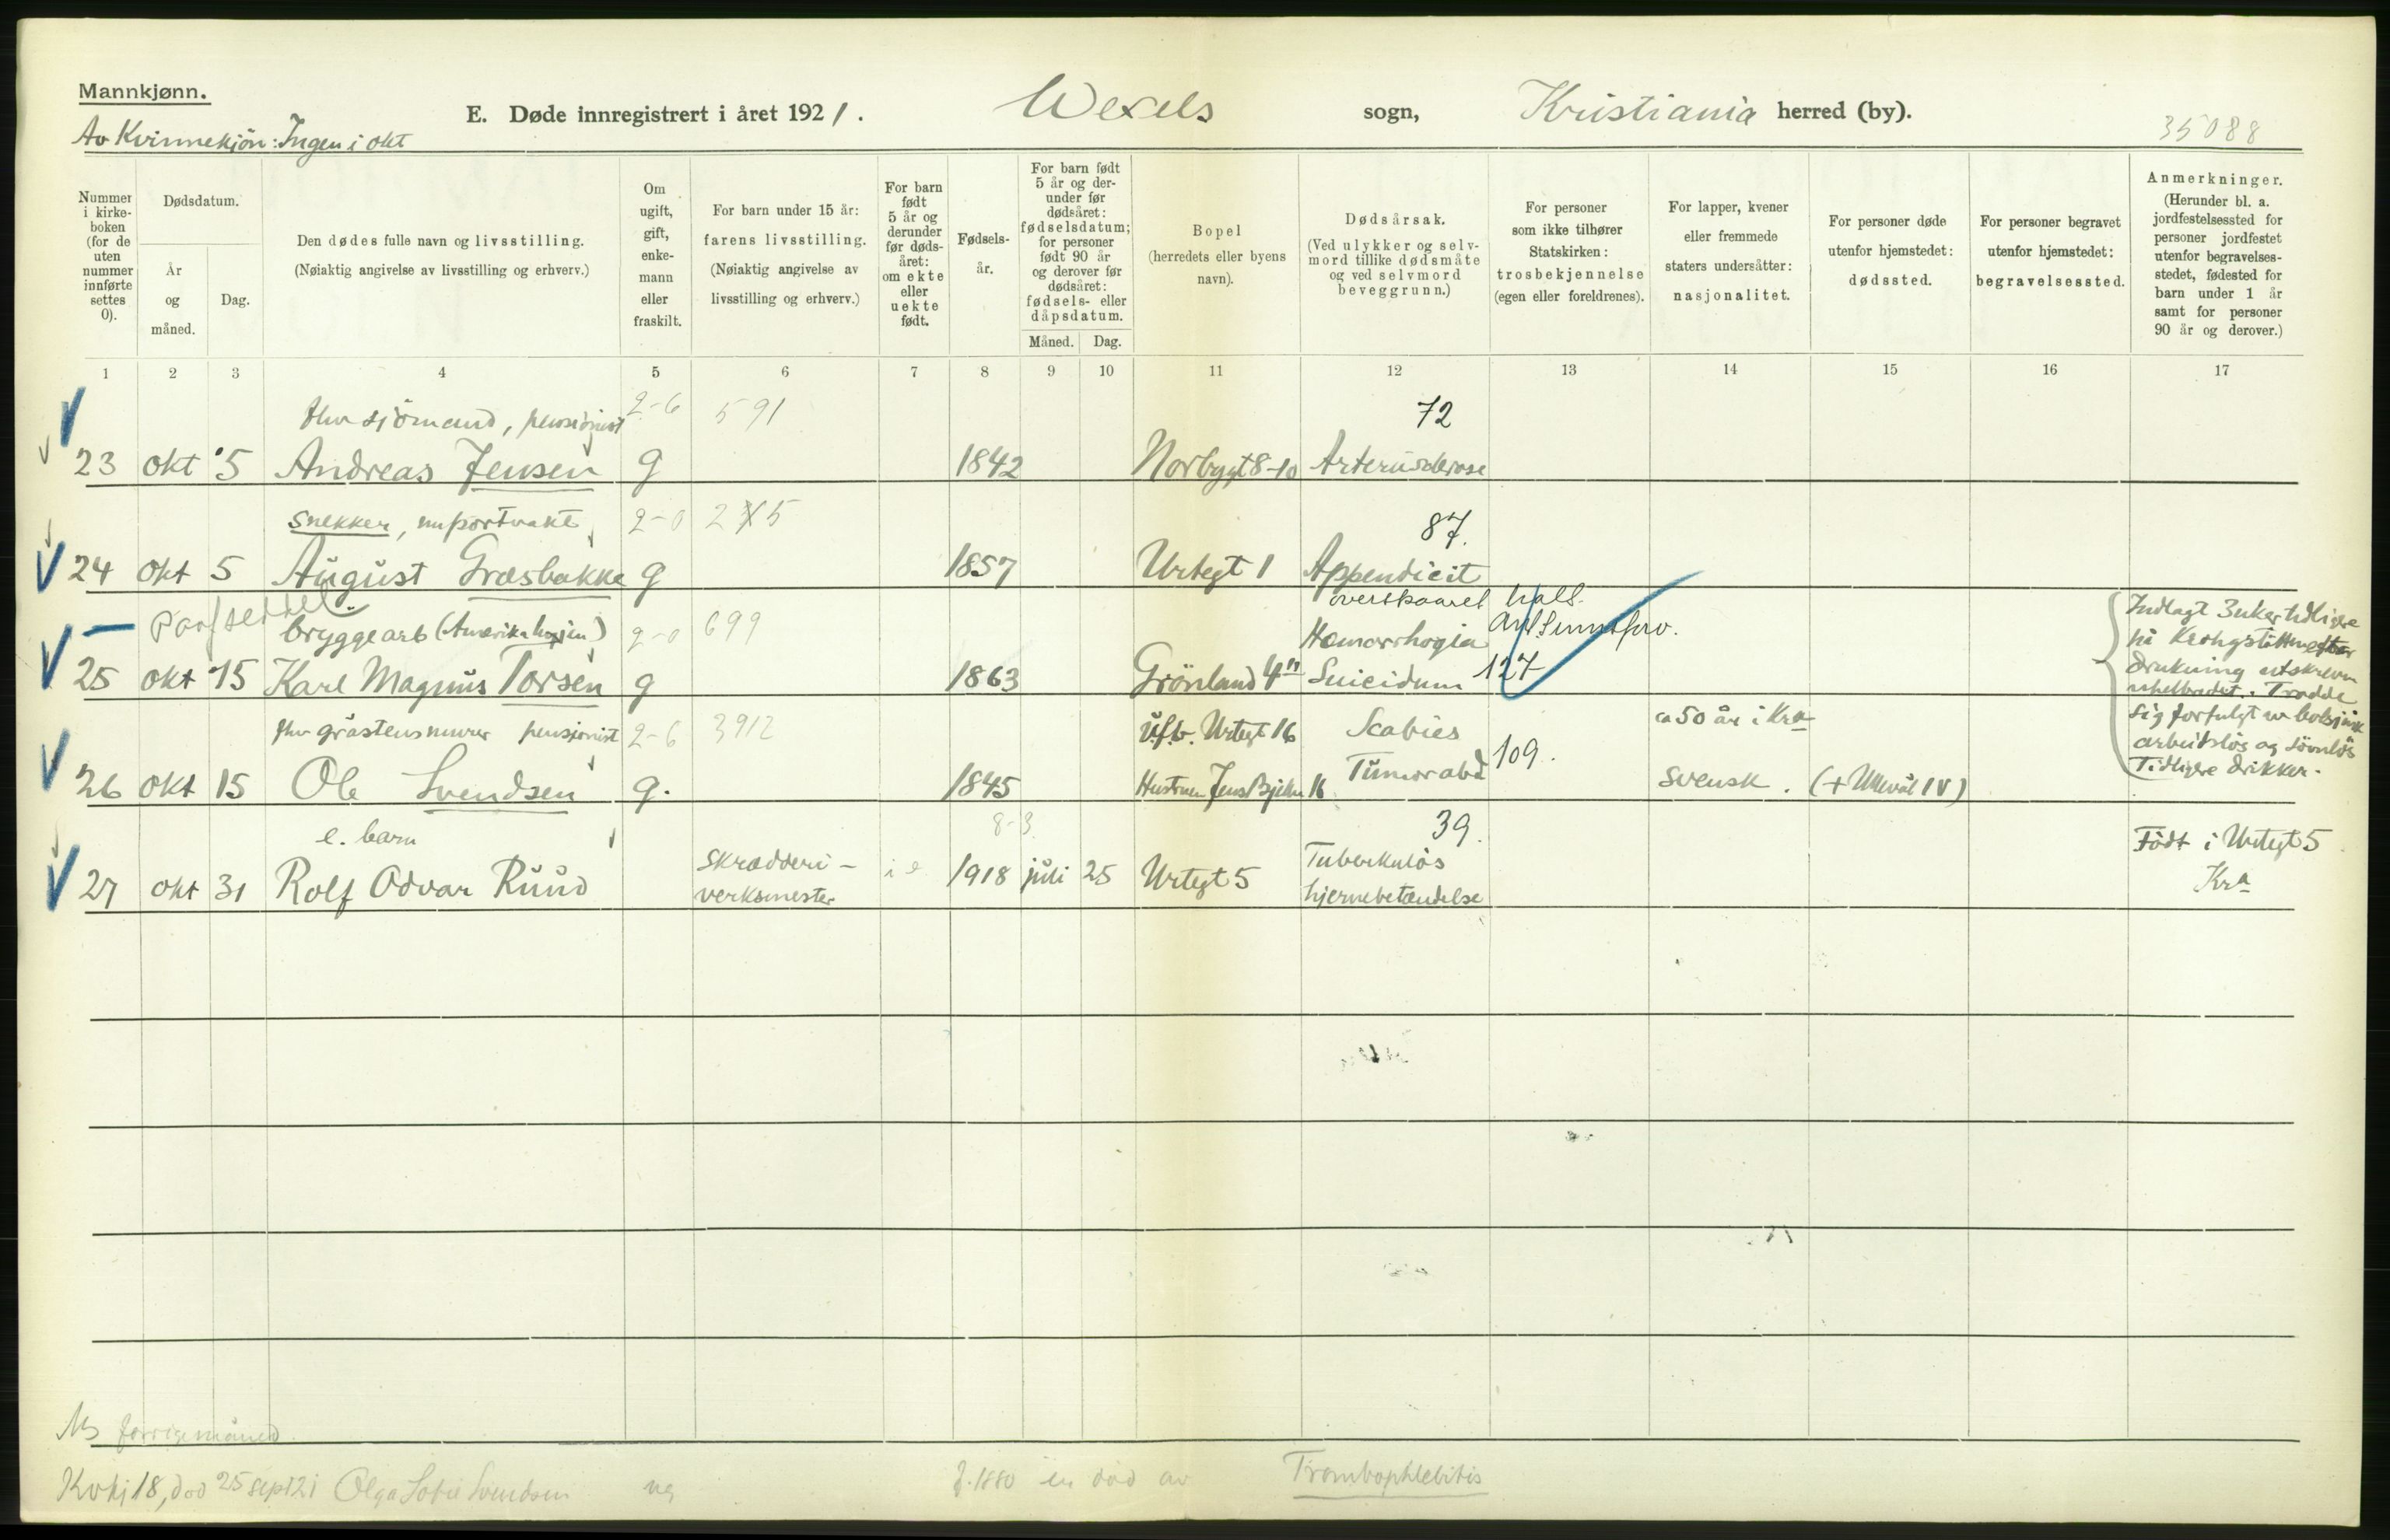 Mannkjønn.
Av Kvinnekjön: Ingen i okt
E. Døde innregistrert i året 1921.
Wexels sogn, Kristiania herred (by).
35088
Nummer i kirke-boken (for de uten nummer innførte settes 0).
Dødsdatum.
År og måned.
Dag.
Den dødes fulle navn og livsstilling.
(Nøiaktig angivelse av livsstilling og erhverv.)
Om ugift, gift, enke-mann eller fraskilt.
For barn under 15 år: farens livsstilling.
(Nøiaktig angivelse av livsstilling og erhverv.)
For barn født 5 år og derunder før døds-året: om ekte eller uekte født.
Fødsels-år.
For barn født 5 år og der-under før dødsåret: fødselsdatum; for personer født 90 år og derover før dødsåret: fødsels- eller dåpsdatum.
Måned. Dag.
Bopel
(herredets eller byens navn).
Dødsårsak.
(Ved ulykker og selv-mord tillike dødsmåte og ved selvmord beveggrunn.)
For personer som ikke tilhører Statskirken: trosbekjennelse (egen eller foreldrenes).
For lapper, kvener eller fremmede staters undersåtter: nasjonalitet.
For personer døde utenfor hjemstedet: dødssted.
For personer begravet utenfor hjemstedet: begravelsessted.
Anmerkninger.
(Herunder bl. a. jordfestelsessted for personer jordfestet utenfor begravelses-stedet, fødested for barn under 1 år samt for personer 90 år og derover.)
1 2 3 4 5 6 7 8 9 10 11 12 13 14 15 16 17
fhv sjömand, pensjonist 2-6 591 72
23 okt 5 Andreas Jensen g 1842 Norbygt 8-10 Arteriosclerose
snekker, nu portvakt 2-0 2 5 87.
24 okt 5 August Græsbakke g 1857 Urtegt 1 Appendicit
overskaaret hals.
bryggearb (Amerikalinjen) 2-0 699 Hæmorrhagia
25 okt 15 Karl Magnus Torsen g 1863 Grönland 4 Suicidum 127
Indlagt 3 uker tidligere
på Krohgstötten efter
drukning utskreven
uhelbredet. Trodde
sig forfulgt
arbeidslös og sövnlös
Tidligere drikker.
fhv gråstensmurer pensjonist 2-6 3912 u.f.b. Urtegt 16 Scabies ca 50 år i Kra
26 okt 15 Ole Svendsen g. 1845 Hustruen Jens Bjelkes 16 Tumor abd 109. svensk. (+ Ullevål IV)
e. barn 8-3 39.
27 okt 31 Rolf Odvar Ruud skrædderi-verksmester i e 1918 juli 25 Urtegt 5 Tuberkuløs hjernebetændelse
Födt i Urtegt 5
Kra
forrige måned
Kvkj 18, död 25 sept 21 Olga Sofie Svendsen ug f. 1880 er död av Trombophlebitis